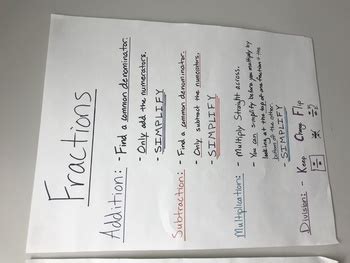 Fractions
Addition: - Find a common denominator.
- Only add the numerators.
- SIMPLIFY
Subtraction: - Find a common denominator.
- Only subtract the numerators.
- SIMPLIFY
Multiplication: - Multiply Straight across.
- You can simplify before you multiply by
looking at the top of one fraction & the
bottom of the other.
- SIMPLIFY
Division: - Keep Change Flip